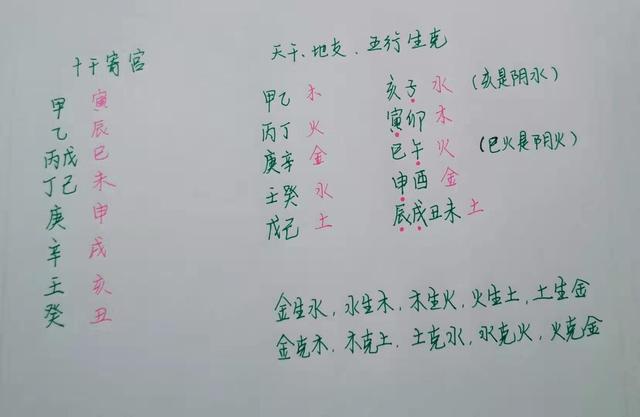 十干寄宫
甲 寅
乙 辰
丙戊 巳
丁己 未
庚 申
辛 戌
壬 亥
癸 丑
天干、地支、五行生克
甲乙 木 亥子 水 (亥是阴水)
丙丁 火 寅卯 木
庚辛 金 巳午 火 (巳火是阴火)
壬癸 水 申酉 金
戊己 土 辰戌丑未 土
金生水,水生木,木生火,火生土,土生金
金克木,木克土,土克水,水克火,火克金